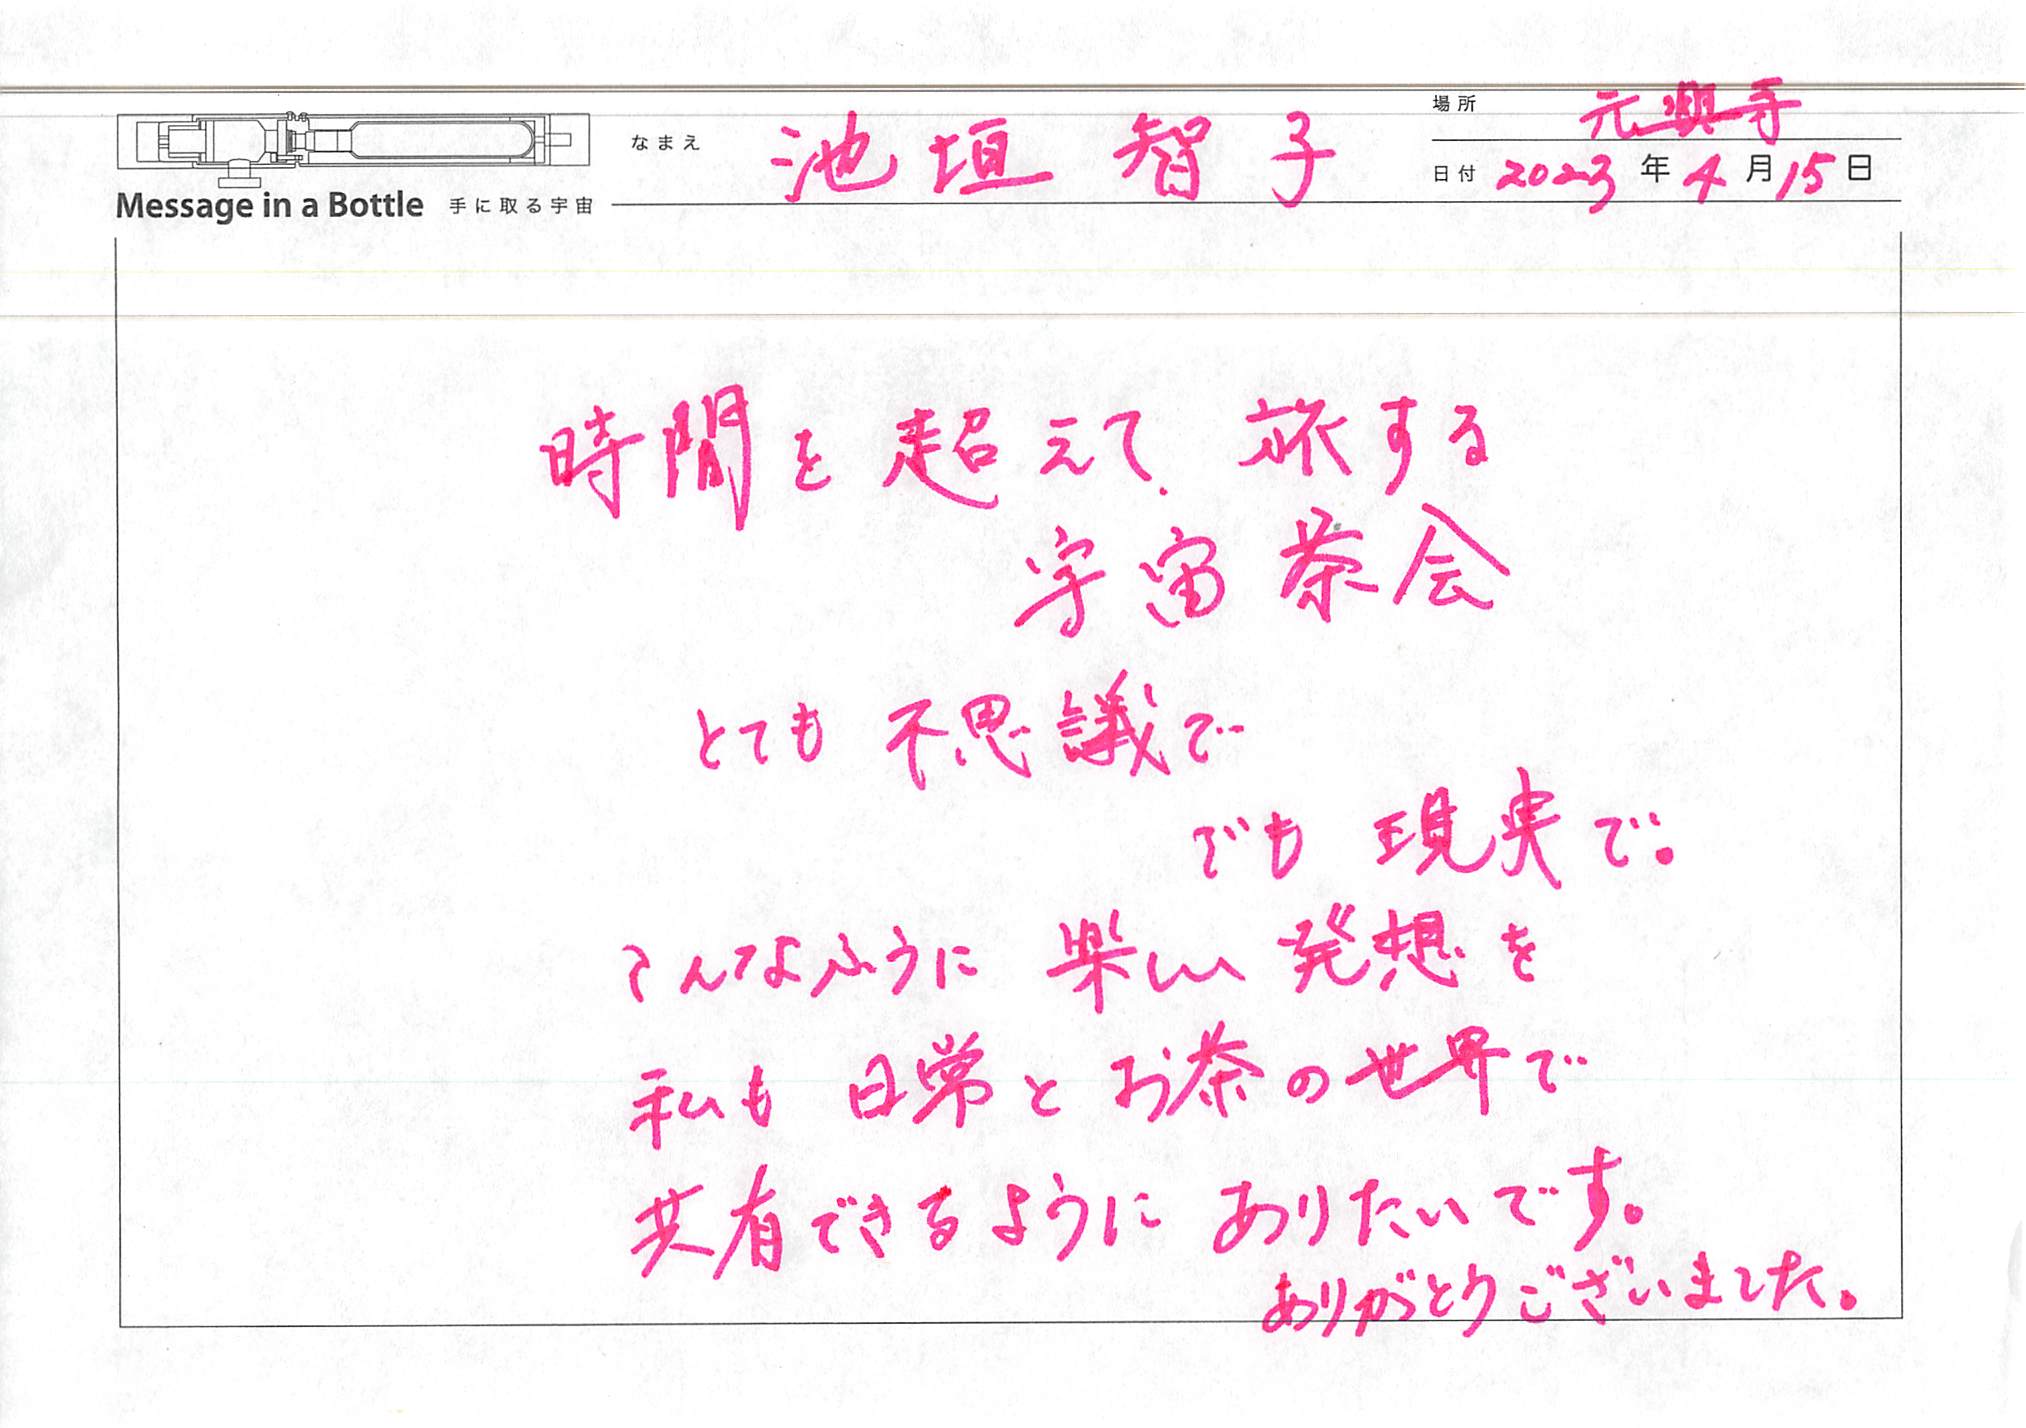 場所 元興寺
なまえ 池垣智子
日付 2023年4月15日
Message in a Bottle 手に取る宇宙
時間を超えて旅する
宇宙茶会
とても不思議で
でも現実で。
こんなふうに楽しい発想を
私も日常とお茶の世界で
共有できるようにありたいです。
ありがとうございました。